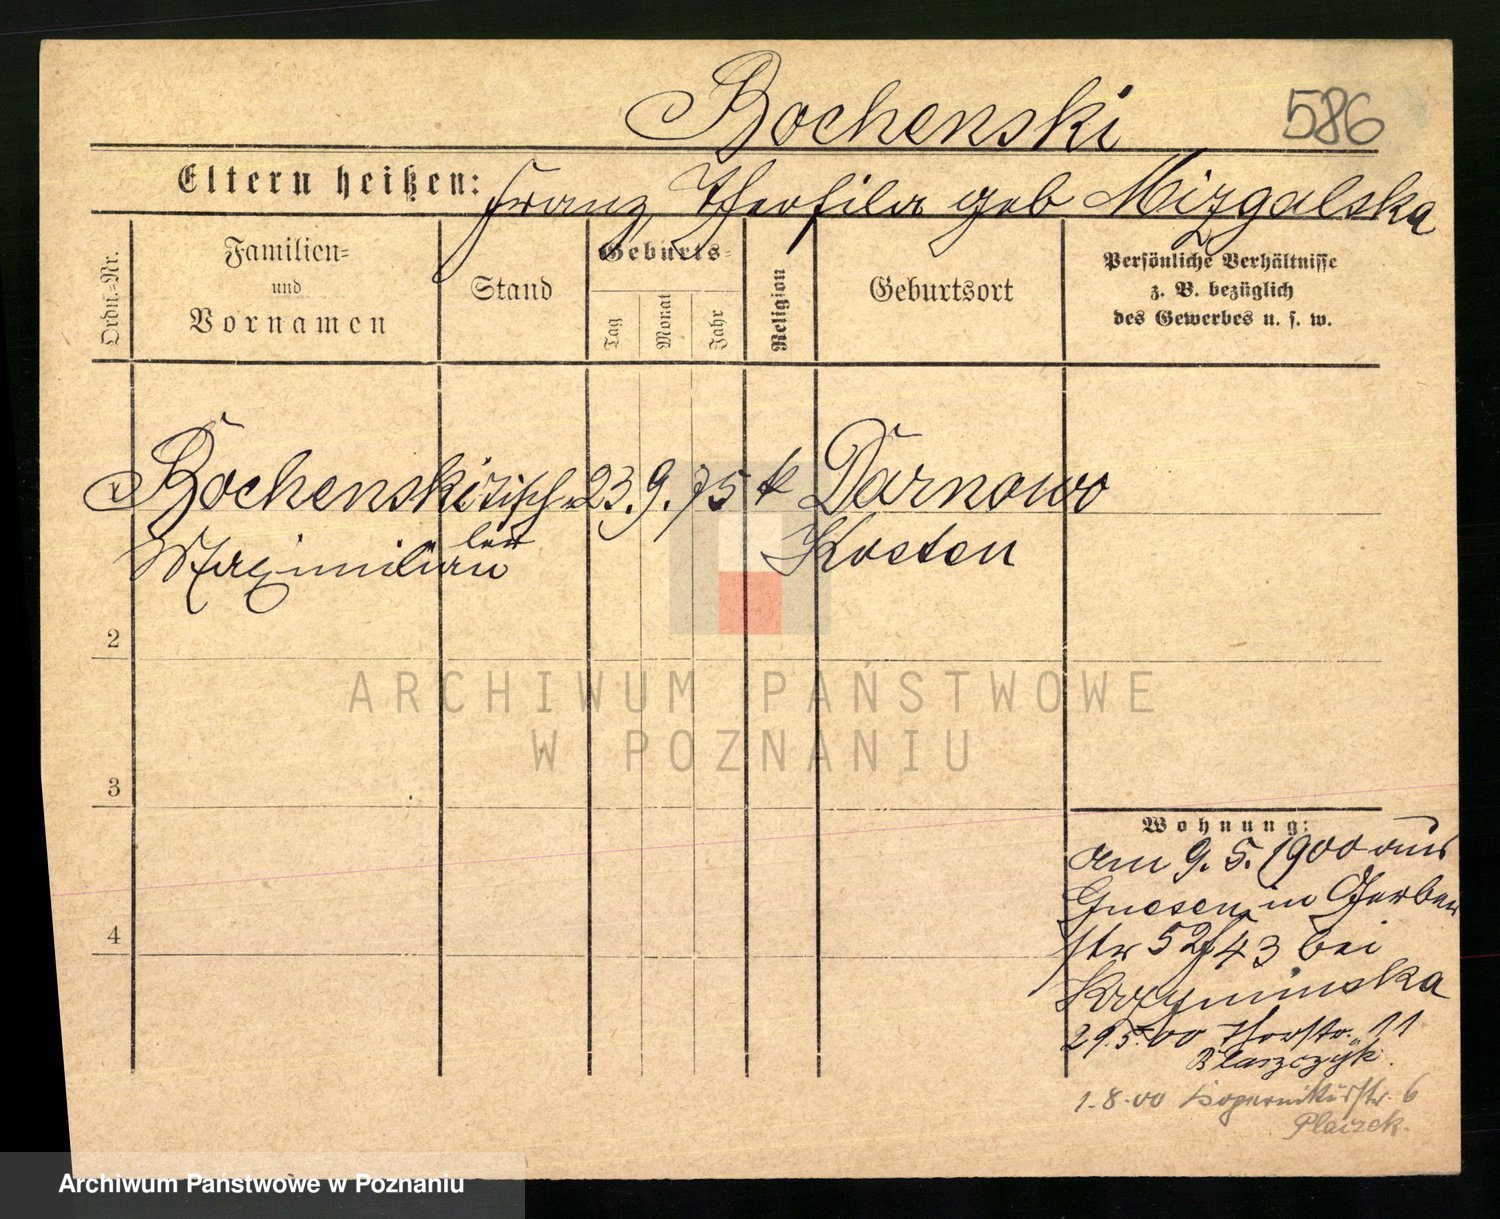 Bochenski 586
Eltern heißen: Franz Theofila geb Mizgalska
Ordn.-Nr.
Familien=
und
Vornamen
Stand
Geburts=
Tag
Monat
Jahr
Religion
Geburtsort
Persönliche Verhältnisse
z. B. bezüglich
des Gewerbes u. s. w.
Bochenski Tisch= 23. 9. 75 k Darnowo
Maximilian ler Kosten
2
ARCHIWUM PAŃSTWOWE
W POZNANIU
3
4
Wohnung:
am 9. 5. 1900 aus
Gnesen in Gerber
str 52 43 bei
29.5.00 Thorstr. 11
Blaszczyk.
1-8-00 Kopernikusstr. 6
Placzek.
Archiwum Państwowe w Poznaniu